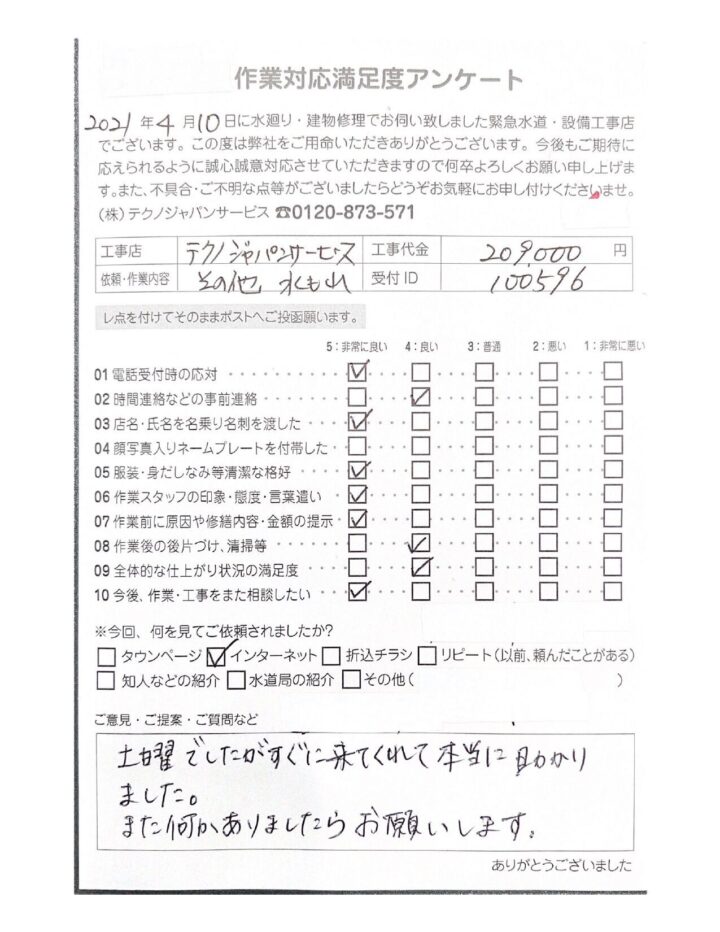 作業対応満足度アンケート
2021年4月10日に水廻り・建物修理でお伺い致しました緊急水道・設備工事店
でございます。この度は弊社をご用命いただきありがとうございます。今後もご期待に
応えられるように誠心誠意対応させていただきますので何卒よろしくお願い申し上げま
す。また、不具合・ご不明な点等がございましたらどうぞお気軽にお申し付けくださいませ。
(株)テクノジャパンサービス ☎0120-873-571
工事店 テクノジャパンサービス 工事代金 209,000 円
依頼・作業内容 その他, 水もれ 受付ID 100596
レ点を付けてそのままポストへご投函願います。
5:非常に良い 4:良い 3:普通 2:悪い 1:非常に悪い
01 電話受付時の応対
02 時間連絡などの事前連絡
03 店名・氏名を名乗り名刺を渡した
04 顔写真入りネームプレートを付帯した
05 服装・身だしなみ等清潔な格好
06 作業スタッフの印象・態度・言葉遣い
07 作業前に原因や修繕内容・金額の提示
08 作業後の後片づけ、清掃等
09 全体的な仕上がり状況の満足度
10 今後、作業・工事をまた相談したい
※今回、何を見てご依頼されましたか?
タウンページ インターネット 折込チラシ リピート(以前、頼んだことがある)
知人などの紹介 水道局の紹介 その他( )
ご意見・ご提案・ご質問など
土曜でしたがすぐに来てくれて本当に助かり
ました。
また何かありましたらお願いします。
ありがとうございました